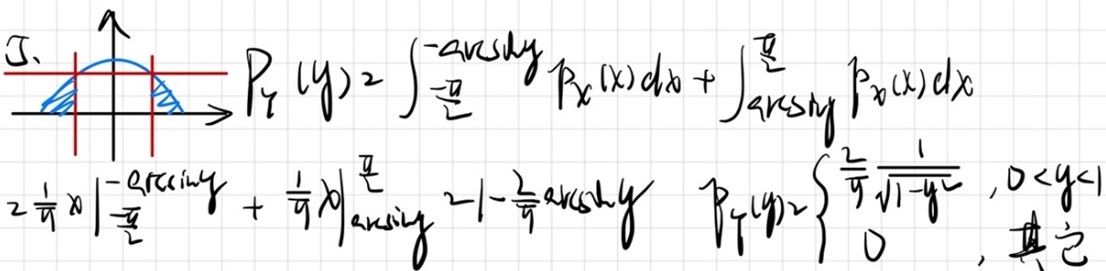 5. P_Y(y)=∫_{-π/2}^{-arcsiny} p_X(x)dx + ∫_{arcsiny}^{π/2} p_X(x)dx
= 1/π x|_{-π/2}^{-arcsiny} + 1/π x|_{arcsiny}^{π/2} = 1-2/π arcsiny P_Y(y)= { 2/π 1/√(1-y²) , 0<y<1
0 , 其它